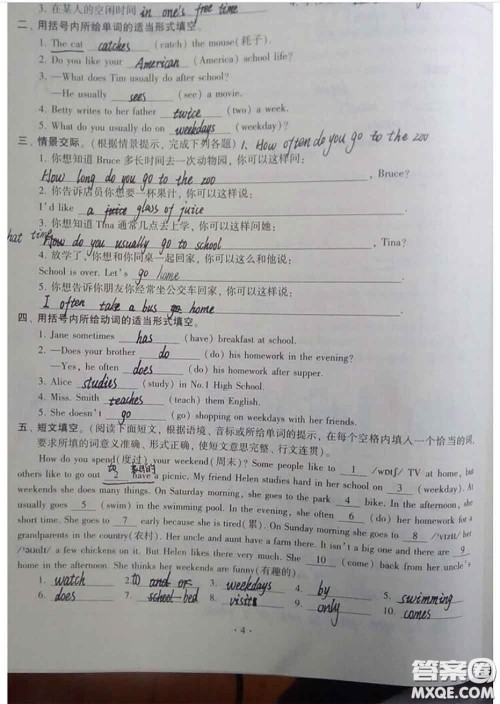 3. 在某人的空闲时间 in one's free time
二、用括号内所给单词的适当形式填空。
1. The cat catches (catch) the mouse(耗子).
2. Do you like your American (America) school life?
3. —What does Tim usually do after school?
—He usually sees (see) a movie.
4. Betty writes to her father twice (two) a week.
5. What do you usually do on weekdays (weekday)?
三、情景交际。(根据情景提示,完成下列各题) 1. How often do you go to the zoo
1. 你想知道 Bruce 多长时间去一次动物园,你可以这样问:
How long do you go to the zoo , Bruce?
2. 你告诉店员你想要一杯果汁,你可以这样说:
I'd like a juice glass of juice
3. 你想知道 Tina 通常几点去上学,你可以这样问她:
hat time How do you usually go to school , Tina?
4. 放学了,你想和你同桌一起回家,你可以这么和他说:
School is over. Let's go home
5. 你想告诉你朋友你经常坐公交车回家,你可以这样说:
I often take a bus go home
四、用括号内所给动词的适当形式填空。
1. Jane sometimes has (have) breakfast at school.
2. —Does your brother do (do) his homework in the evening?
—Yes, he often does (do) his homework after supper.
3. Alice studies (study) in No.1 High School.
4. Miss. Smith teaches (teach) them English.
5. She doesn't go (go) shopping on weekdays with her friends.
五、短文填空。(阅读下面短文,根据语境、音标或所给单词的提示,在每个空格内填入一个恰当的词,
要求所填的词意义准确、形式正确,使短文意思完整、行文连贯)。
How do you spend(度过) your weekend(周末)? Some people like to 1 /wɒtʃ/ TV at home, but
others like to go out 2 to have a picnic. My friend Helen studies hard in her school on 3 (weekday). At
weekends she does many things. On Saturday morning, she goes to the park 4 bike. In the afternoon, she
usually goes 5 (swim) in the swimming pool. In the evening, she often 6 (do) her homework for a
short time. She goes to 7 early because she is tired(累). On Sunday morning she goes to 8 /'vɪzɪt/ her
grandparents in the country(农村). Her uncle and aunt have a farm there. It isn't a big one and there are 9
/'əʊnlɪ/ a few chickens on it. But Helen likes there very much. She 10 (come) back from her uncle's
home in the afternoon. She thinks her weekends are funny(有趣的).
1. watch 2. to and or 3. weekdays 4. by 5. swimming
6. does 7. school bed 8. visit 9. only 10. comes
· 4 ·
答案圈
MXQE.COM